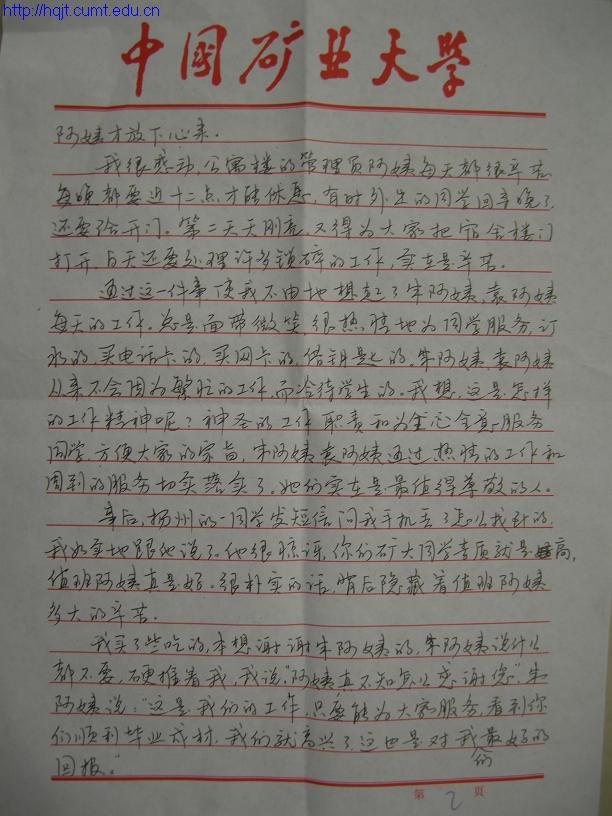 http://hqjt.cumt.edu.cn
中国矿业大学
阿姨才放下心来.
我很感动,公寓楼的管理员阿姨每天都很辛苦
每晚都要近十二点才能休息,有时外出的同学回来晚了,
还要给开门。第二天天刚亮,又得为大家把宿舍楼门
打开,白天还要处理许多锁碎的工作,实在是辛苦。
通过这一件事使我不由地想起了朱阿姨,袁阿姨
每天的工作。总是面带微笑,很热情地为同学服务,订
水的,买电话卡的,买网卡的,借钥匙的。朱阿姨,袁阿姨
从来不会因为繁忙的工作,而冷待学生的。我想,这是怎样
的工作精神呢?神圣的工作职责和为全心全意服务
同学,方便大家的宗旨,朱阿姨袁阿姨通过热情的工作和
周到的服务切实落实了。她们实在是最值得尊敬的人。
事后,扬州的一同学发短信问我手机丢了怎么找到的,
我如实地跟他说了。他很惊讶,你们矿大同学素质就是高,
值班阿姨真是好。很朴实的话,背后隐藏着值班阿姨
多大的辛苦。
我买了些吃的,本想谢谢朱阿姨的,朱阿姨说什么
都不要,硬推着我,我说:"阿姨真不知怎么感谢您",朱
阿姨说:"这是我们的工作,只要能为大家服务,看到你
们顺利毕业成材,我们就高兴了,这也是对我们最好的
回报。"
第 2 页